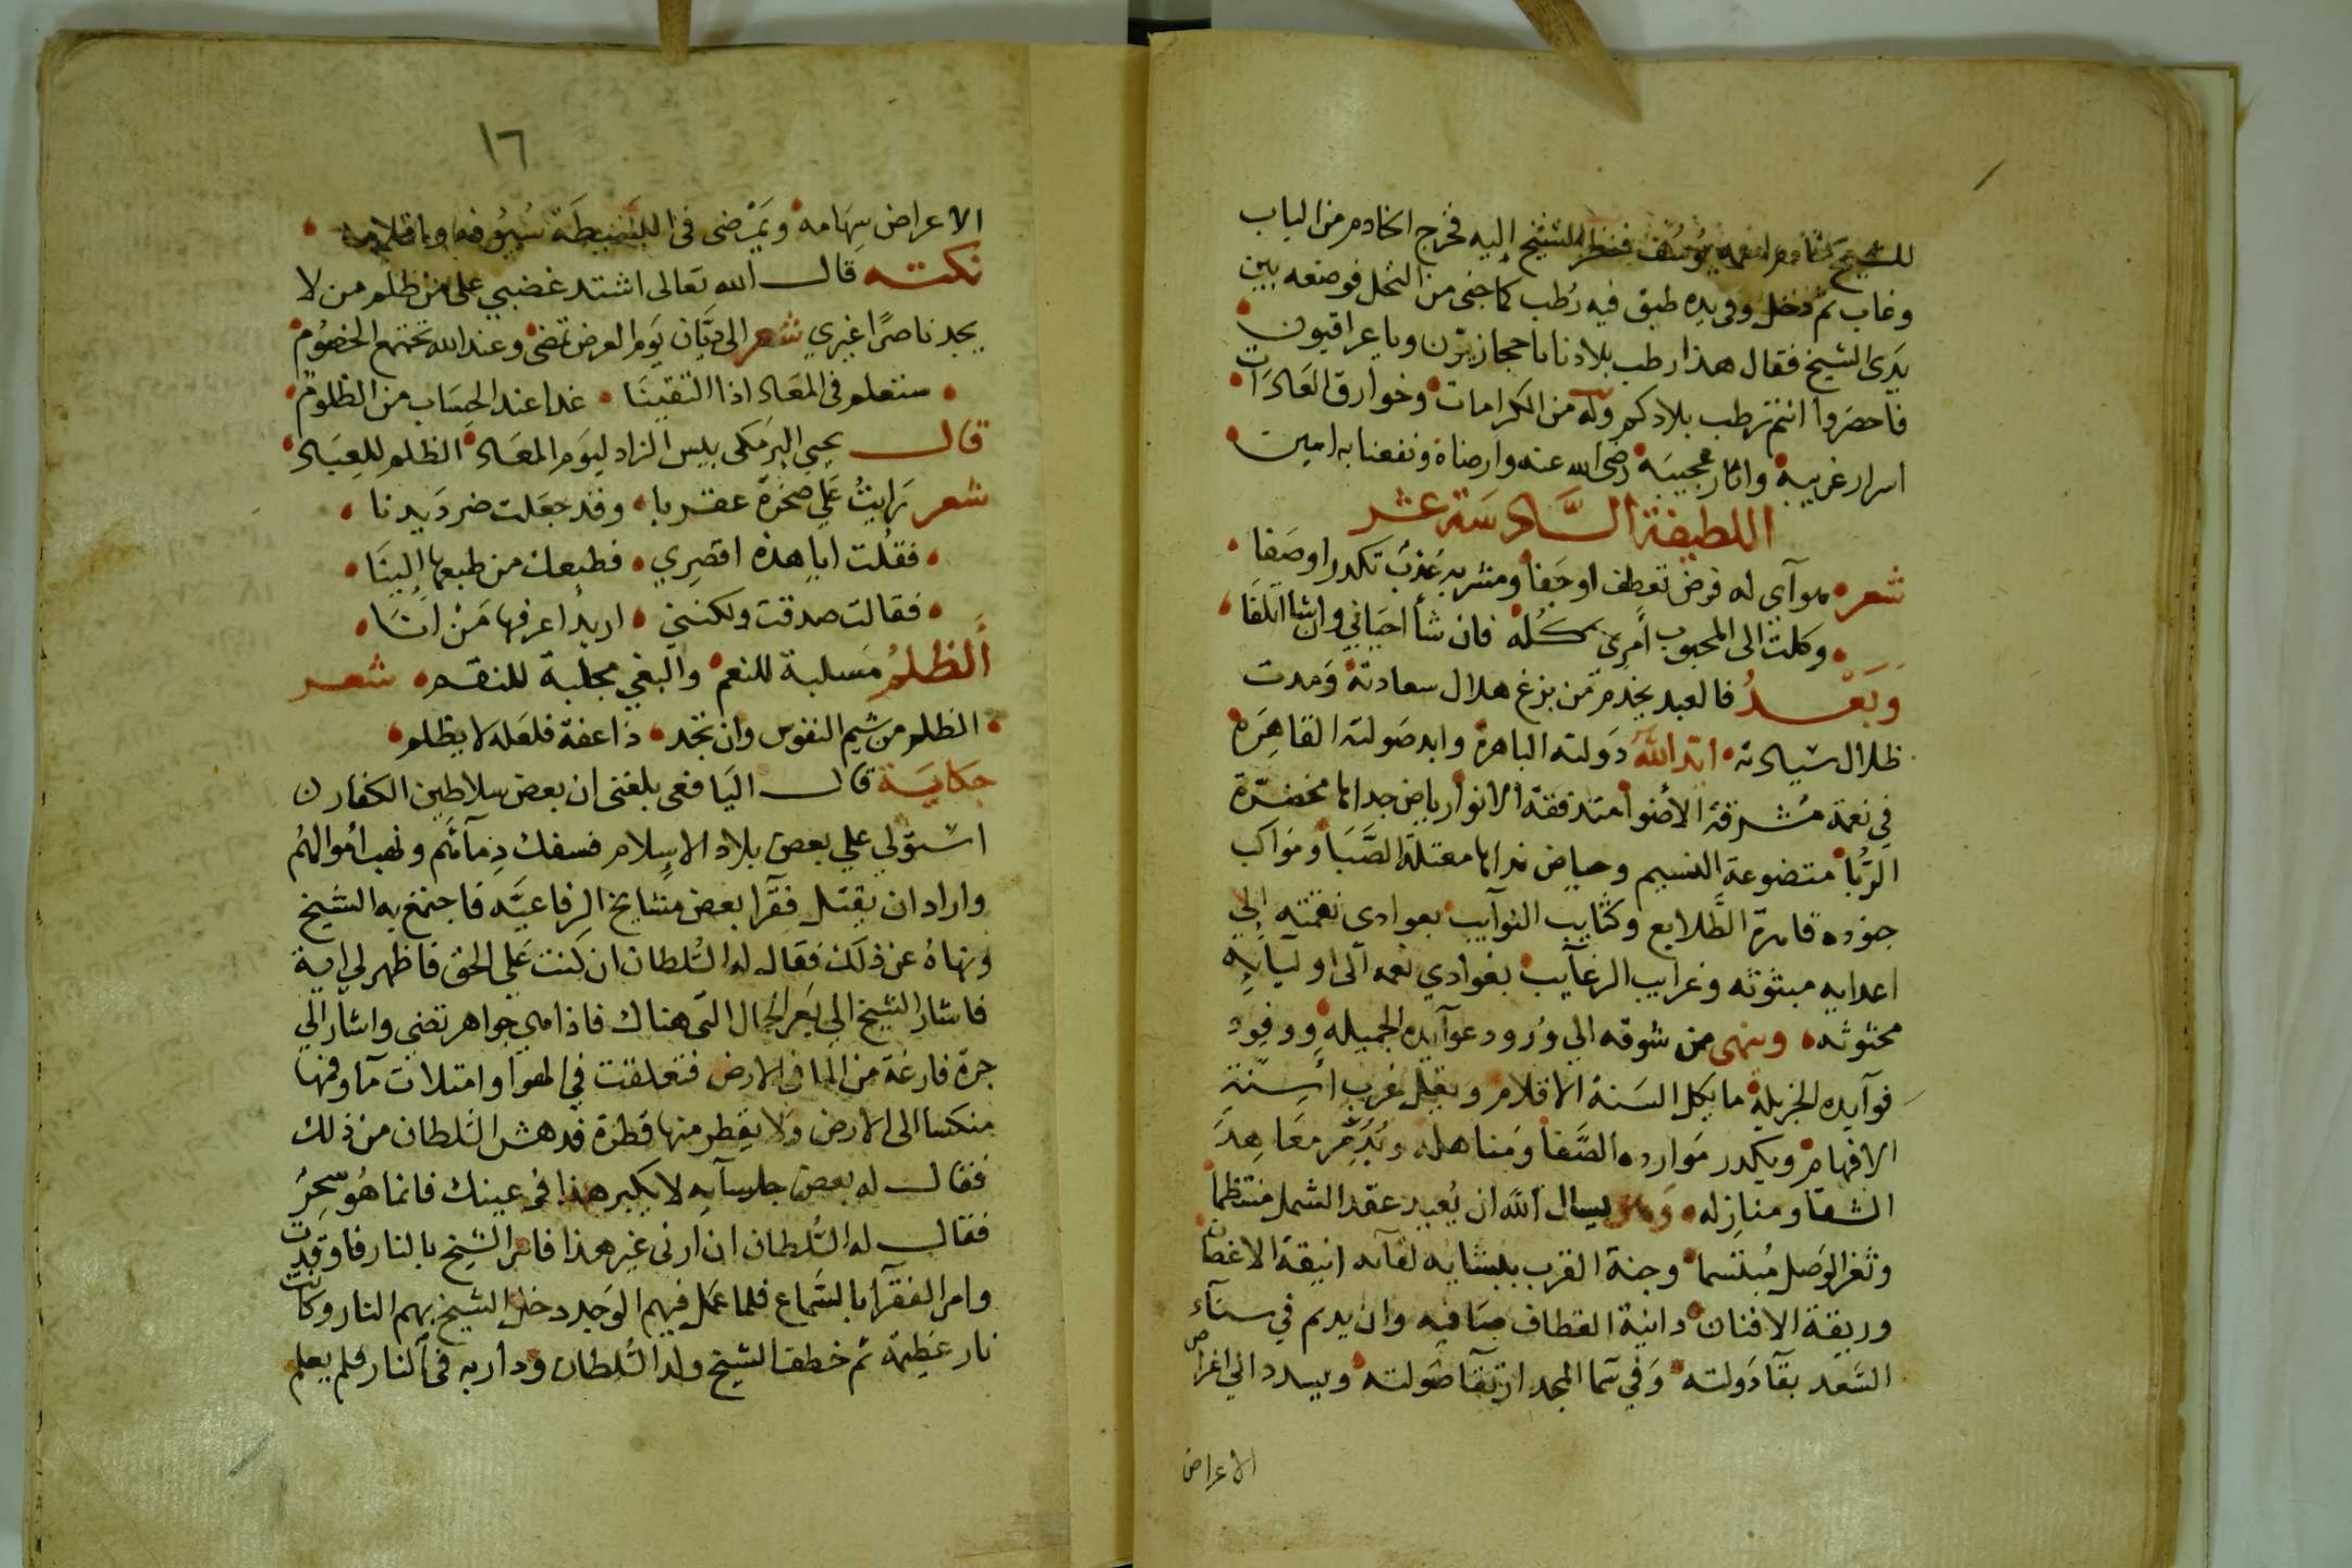 للشيخ خادم اسمه يوسف فنظر الشيخ إليه فخرج الخادم من الباب
وغاب ثم دخل وفي يده طبق فيه رُطب كما جنى من النخل فوضعه بين
يدى الشيخ فقال هذا رطب بلادنا يا حجازيون ويا عراقيون
فاحضروا انتم رطب بلادكم وله من الكرامات وخوارق العادات
اسرار غريبة واثار عجيبة رضى الله عنه وارضاه ونفعنا به امين
اللطيفة السادسة عشر
شعر هواي له فرض تعطف او جفا ومشربه عذب تكدر او صفا
وكلت الى المحبوب أمرى كله فان شأ احياني وان شا اتلفا
وبعد فالعبد يخدم من بزغ هلال سعادته ومدت
ظلال سيادته ايد الله دولته الباهرة وابد صولته القاهرة
في نعمة مشرقة الأضوا متدفقة الانوار رياض جداها مخضرة
الرُّبا متضوعة النسيم وحياض نداها معتلة الصَّبَا ومواكب
جنوده قامرة الطلايع وكتايب النوايب بعوادى نقمته إلي
اعدايه مبثوثه وغرايب الرغايب بغوادي نعمه الى اوليايه
محثوثه وينهى من شوقه الي ورود عوايده الجميله ووفود
فوايده الجزيلة ما يكل السنة الاقلام ويفل غرب أسنة
الافهام ويكدر موارده الصفا ومناهله ويدمر معاهد
الشقا ومنازله يسال الله ان يعيد عقد الشمل منتظما
وثغر الوصل مبتسما وجنة القرب لقايه انيقة الاغصان
وريقة الافنان دانية القطاف صافيه وان يديم في سناء
السعد بقا دولته وفي سما المجد ارتقا صولته ويسدد الي اغراض
الاعراض
١٦
الاعراض سهامه ويمضى في البسيطة سيوفه واقلامه
نكته قال الله تعالى اشتد غضبي على من ظلم من لا
يجد ناصرًا غيري شعر الى ديان يوم العرض نمضى وعند الله تجتمع الخصوم
ستعلم في المعاد اذا التقينا غدا عند الحساب من الظلوم
قال يحيي البرمكى بيس الزاد ليوم المعاد الظلم للعباد
شعر رايتُ علي صخرة عقربا وقد جعلت ضربها ديدنا
فقلت ايا هذه اقصري فطبعك من طبعها الينا
فقالت صدقت ولكنني اريد اعرفها من انا
الظلم مسلبة للنعم والبغي مجلبة للنقم شعر
الظلم من شيم النفوس وان تجد ذا عفة فلعله لا يظلم
حكاية قال اليافعى بلغنى ان بعض سلاطين الكفار
استولي علي بعض بلاد الاسلام فسفك دمآئهم ونهب أموالهم
واراد ان يقتل فقرا بعض مشايخ الرفاعيه فاجتمع به الشيخ
ونهاه عن ذلك فقال له السلطان ان كنت علي الحق فاظهر لي اية
فاشار الشيخ الي بعر الجمال التى هناك فاذا هي جواهر تضي واشار الي
جرة فارغة من الما في الارض فتعلقت في الهوا وامتلات مآ وفمها
منكسا الى الارض ولا يقطر منها قطرة فدهش السلطان من ذلك
فقال له بعض جلسآيه لا يكبر هذا في عينك فانما هو سحر
فقال له السلطان ان ارنى غير هذا فامر الشيخ بالنار فاوقدت
وامر الفقرآ بالسماع فلما عمل فيهم الوجد دخل الشيخ بهم النار وكانت
نار عظيمة ثم خطف الشيخ ولد السلطان ودار به في النار فلم يعلم